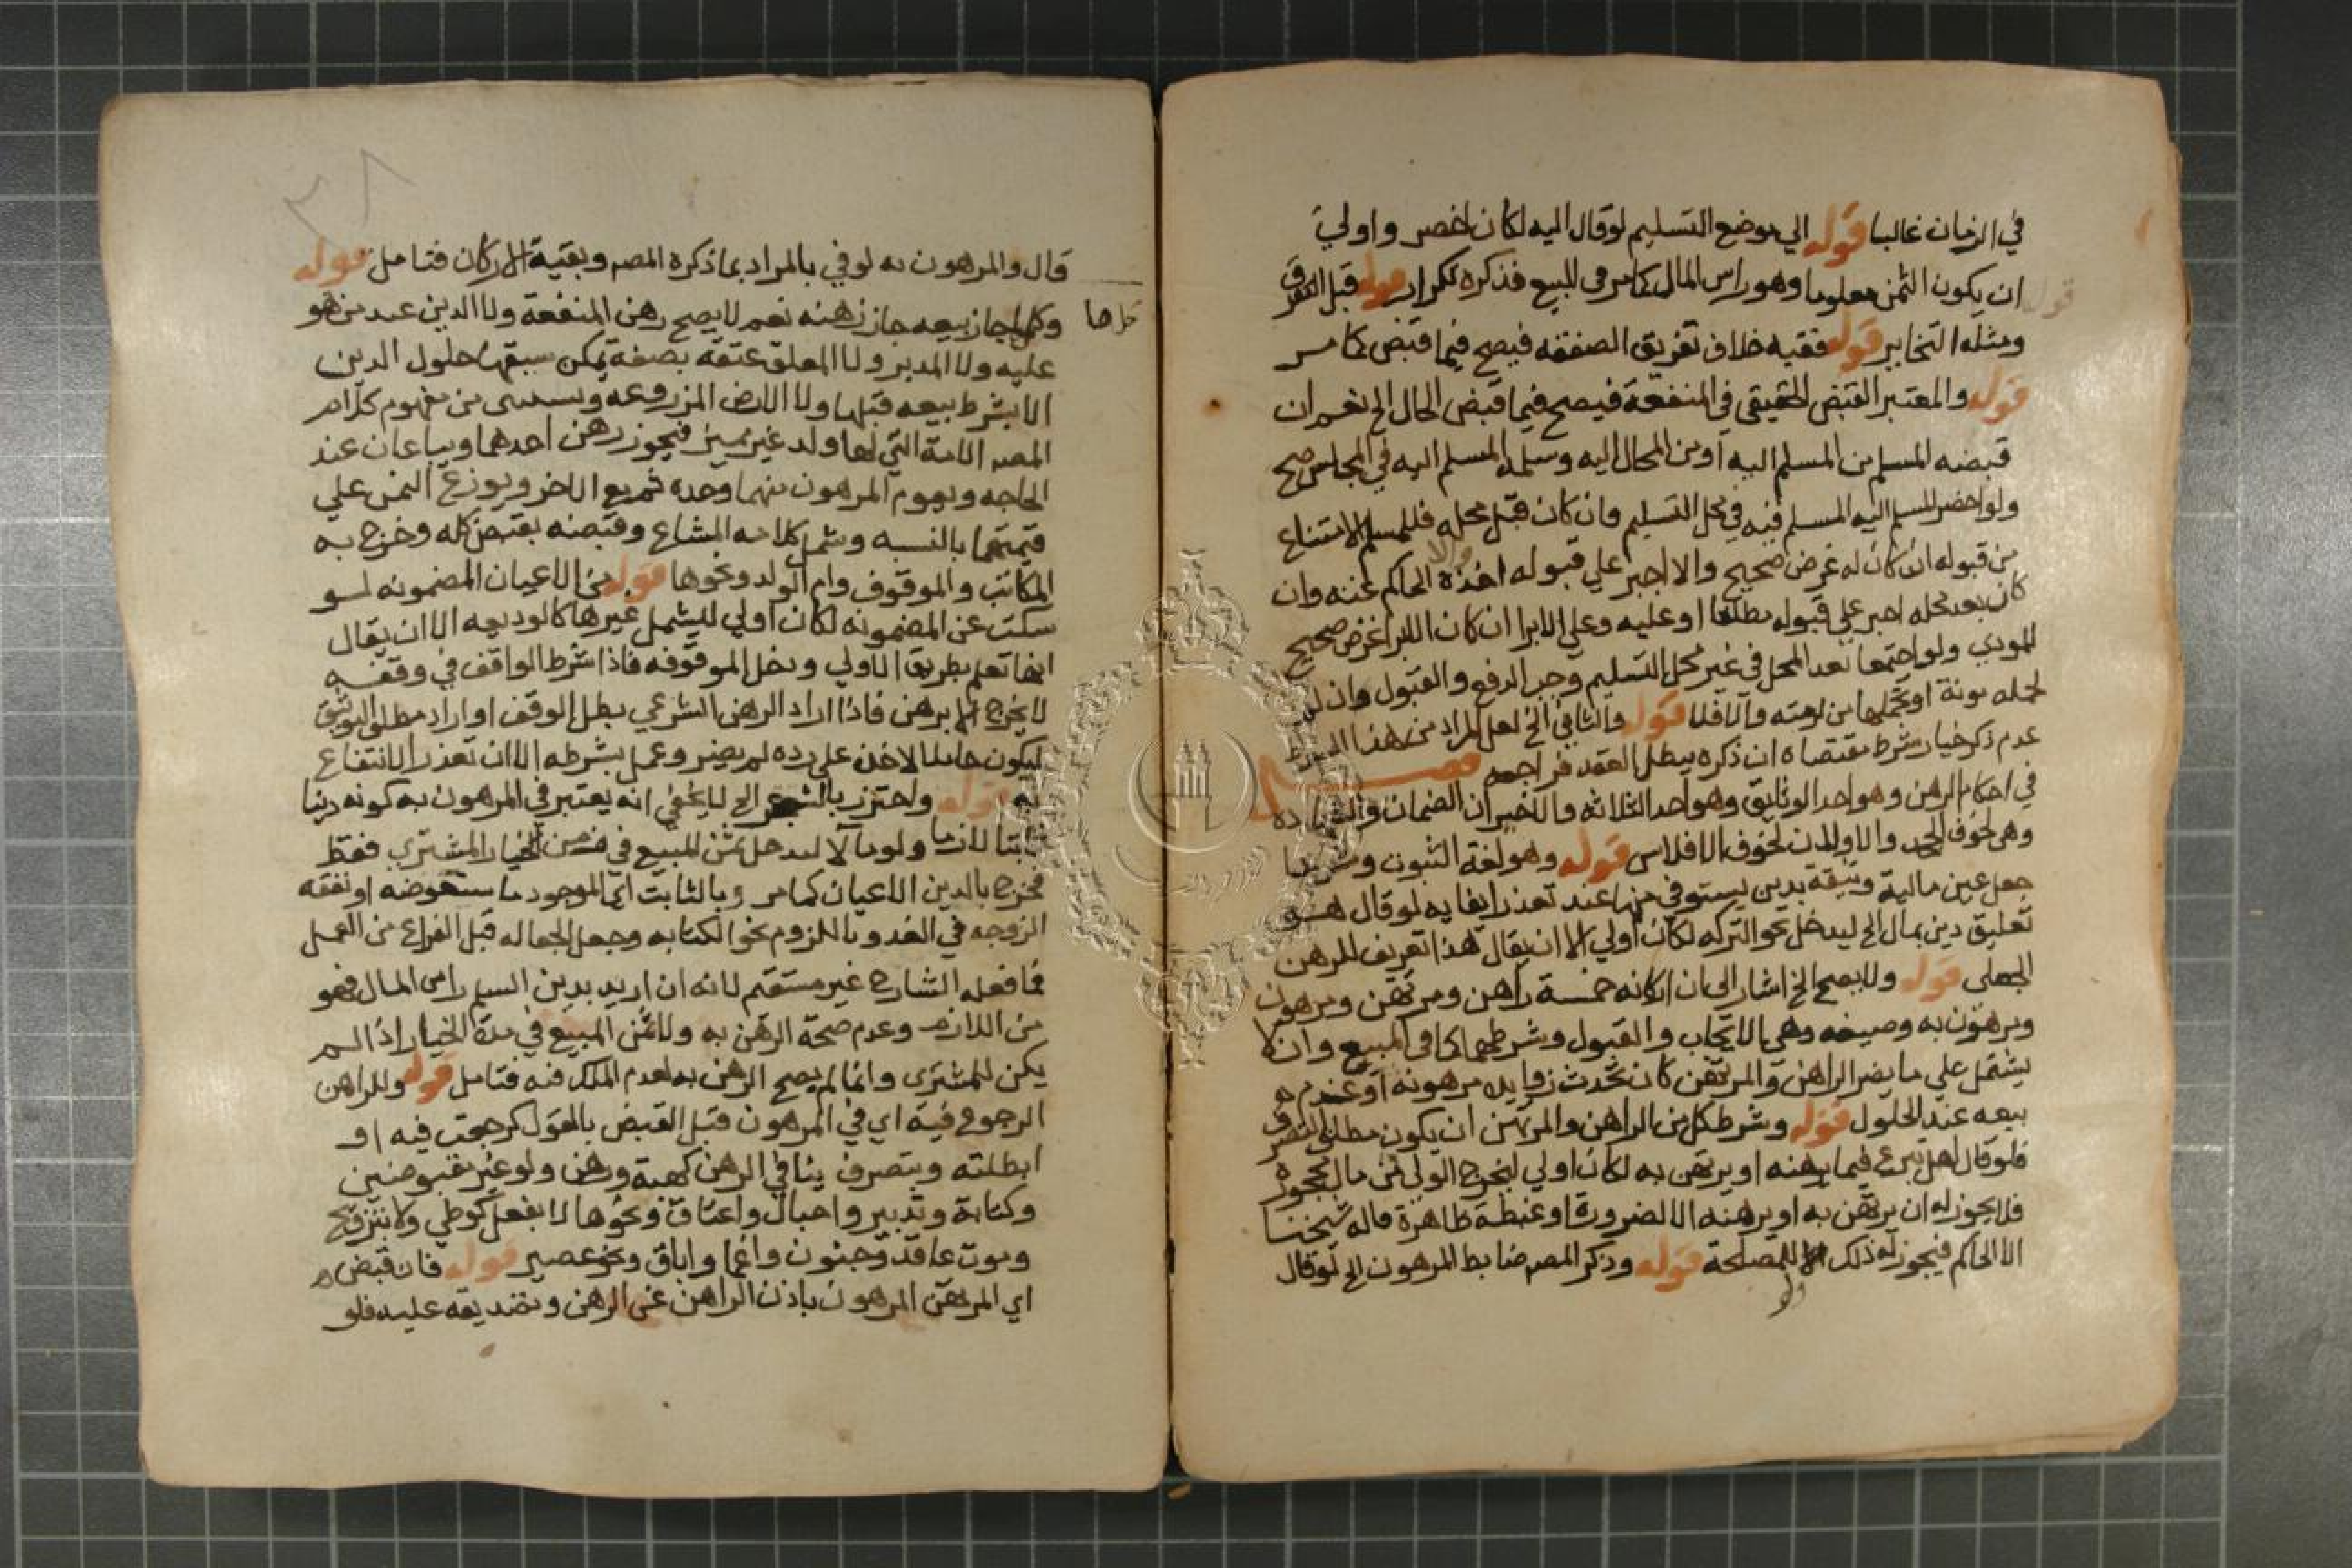 في الزمان غالبا قوله الي موضع التسليم لو قال اليه لكان اخصر واولي
ان يكون الثمن معلوما وهو راس المال كما مر في البيع فذكره تكرار قوله قبل التفرق
ومثله التخاير قوله ففيه خلاف تفريق الصفقه فيصح فيما قبض كما مر
قوله والمعتبر القبض الحقيقي في المنفعة فيصح فيما قبض الحال الخ نعم ان
قبضه المسلم من المسلم اليه او من المحال اليه وسلمه المسلم اليه في المجلس صح
ولو احضر المسلم اليه المسلم فيه في محل التسليم فان كان قبل محله فللمسلم الامتناع
من قبوله ان كان له غرض صحيح والا اجبر علي قبوله اخذه الحاكم عنه وان
كان بعد محله اجبر علي قبوله مطلقا او عليه وعلي الابرا ان كان اللبرا غرض صحيح
للمودي ولو اجتمعا بعد المحل في غير محل التسليم وجب الدفع والقبول وان لم
لحمله مونة او تحملها من لزمته والا فلا قوله والثاني الخ لعل المراد من هذا الشرط
عدم ذكر خيار شرط مقتضاه ان ذكره يبطل العقد فراجعه فصــــل
في احكام الرهن وهو احد الوثايق وهو احد الثلاثه والاخيران الضمان والشهاده
وهي لخوف الجحد والاولان لخوف الافلاس قوله وهو لغة الثبوت وشرعا
جعل عين مالية وثيقة بدين يستوفي منها عند تعذر ايفايه لو قال هــو
تعليق دين بمال الخ ليدخل نحو التركه لكان اولي الا ان يقال هذا تعريف للرهن
الجعلي قوله ولا يصح الخ اشار الي ان اركانه خمسة راهن ومرتهن ومرهون
ومرهون به وصيغه وهي الايجاب والقبول وشرطهما كما في المبيع وان لا
يشتمل علي ما يضر الراهن والمرتهن كان تحدث زوايده مرهونه او عدم
بيعه عند الحلول قوله وشرط كل من الراهن والمرتهن ان يكون مطلق التصرف
فلو قال اهل تبرع فيما يرهنه او يرتهن به لكان اولي ليخرج الولي في مال محجوره
فلا يجوز له ان يرتهن به او يرهنه الا لضرورة او غبطة ظاهرة قاله شيخنا
الا الحاكم فيجوز له ذلك للمصلحة قوله وذكر المصـ ضابط المرهون الخ لو قال
قال والمرهون به لو في بالمراد بما ذكره المصـ وبقية الاركان فتامل قوله
وكل ما جاز بيعه جاز رهنه نعم لا يصح رهن المنفعة ولا الدين عند من هو
عليه ولا المدبر ولا المعلق عتقه بصفة يمكن سبقها حلول الدين
الا بشرط بيعه قبلها ولا الارض المزروعه ويستثنى من مفهوم كلام
المصـ الامة التي لها ولد غير مميز فيجوز رهن احدهما ويباعان عند
الحاجه ويقوم المرهون منهما وحده ثم مع الاخر ويوزع الثمن علي
قيمتهما بالنسبه وشمل كلامه المشاع وقبضه بقبض كله وخرج به
المكاتب والموقوف وام الولد ونحوها قوله من الاعيان المضمونه لــو
سكت عن المضمونه لكان اولي ليشمل غيرها كالوديعه الا ان يقال
انها تعلم بطريق الاولي ودخل الموقوفه فاذا شرط الواقف في وقفه
لا يخرج الا برهن فاذا اراد الرهن الشرعي بطل الوقف او اراد مطلق التوثق
ليكون حاملا للاخذ علي رده لم يضر وعمل بشرطه الا ان تعذر الانتفاع
به قوله واحترز بالشرعي الخ لا يخفي انه يعتبر في المرهون به كونه دينا
ثابتا لازما ولو مآلا ليدخل ثمن المبيع في زمن الخيار المشتري فقط
فخرج بالدين الاعيان كما مر وبالثابت اي الموجود ما سيقرضه او نفقه
الزوجه في الغد وباللزوم نحو الكتابه وجعل الجعاله قبل الفراغ من العمل
فما فعله الشارح غير مستقيم لانه ان اريد بدين السلم راس المال فهو
من اللازم وعدم صحة الرهن به ولا ثمن المبيع في مدة الخيار اذا لــم
يكن للمشتري وانما لم يصح الرهن به لعدم الملك فيه فتامل قوله وللراهن
الرجوع فيه اي في المرهون قبل القبض بالقول كرجعت فيه او
ابطلته وبتصرف ينافي الرهن كهبة ورهن ولو غير مقبوضين
وكتابة وتدبير واحبال واعتاق ونحوها لا بفعل كوطي ولا بتزويج
وموت عاقد وجنون واغما واباق ونحو عصير قوله فان قبض
اي المرتهن المرهون باذن الراهن عن الرهن وتصديقه عليه فلو